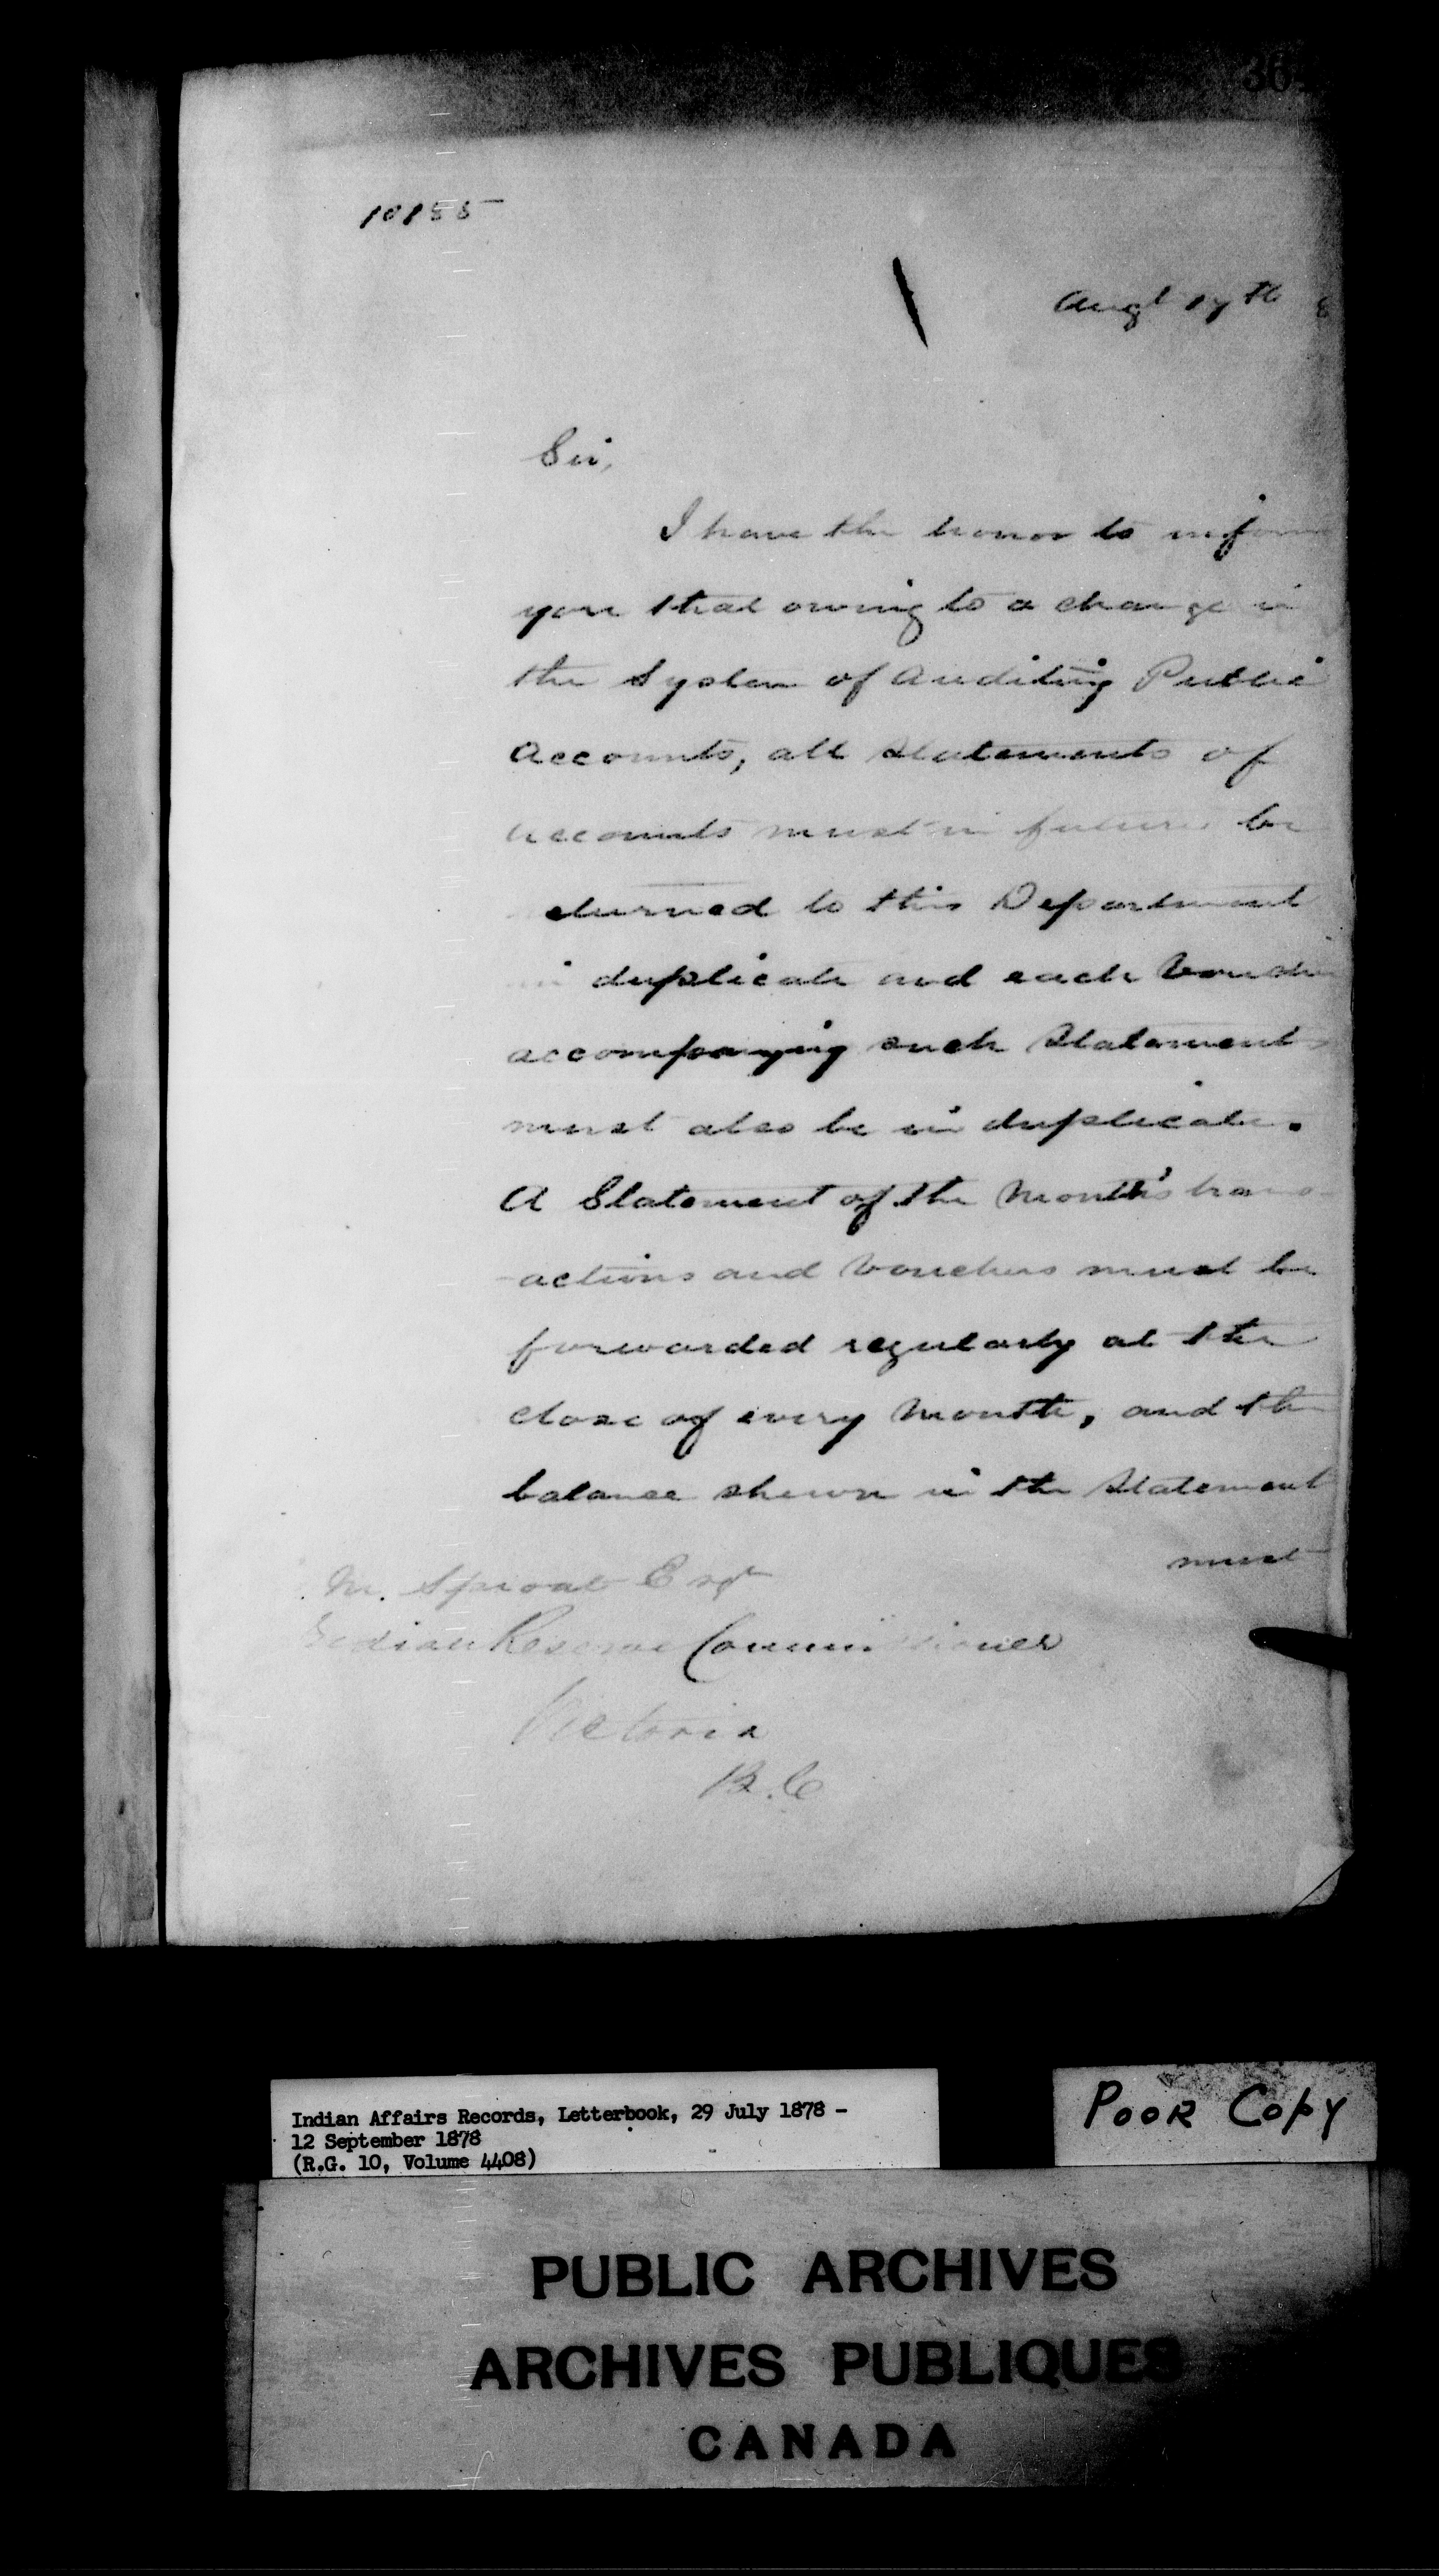 36
10155
Augt 17th 8
Sir,
I have the honor to inform
you that owing to a change in
the System of Auditing Public
Accounts, all Statements of
Accounts must in future be
eturned to this Department
in duplicate and each Voucher
accompanying such Statements
must also be in duplicate.
A Statement of the Month's trans
-actions and Vouchers must be
forwarded regularly at the
close of every Month, and the
balance shewn in the Statement
must
M. Sproat Esqr
Indian Reserve Commissioner
Victoria
B.C
Indian Affairs Records, Letterbook, 29 July 1878 -
12 September 1878
(R.G. 10, Volume 4408)
POOR COPY
PUBLIC ARCHIVES
ARCHIVES PUBLIQUES
CANADA